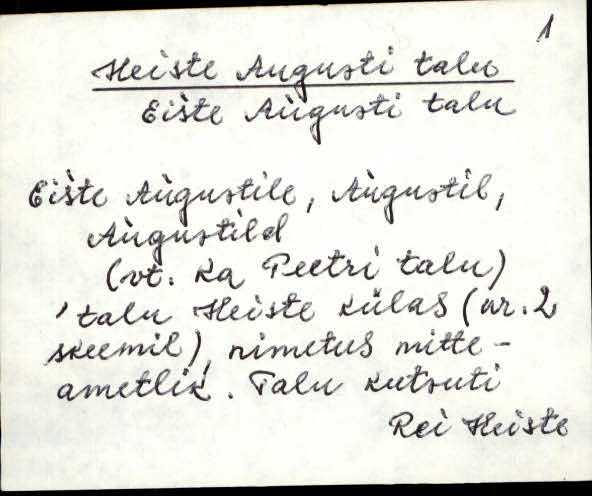 1
Heiste Augusti talu
Eìšte Aùgusti talu
Eìšte Aùgustile, Aùgustil,
Aùgustild
(vt. ka Peetri talu)
'talu Heiste külas (nr. 2
skeemil), nimetus mitte-
ametlik. Talu kutsuti
Rei Heiste